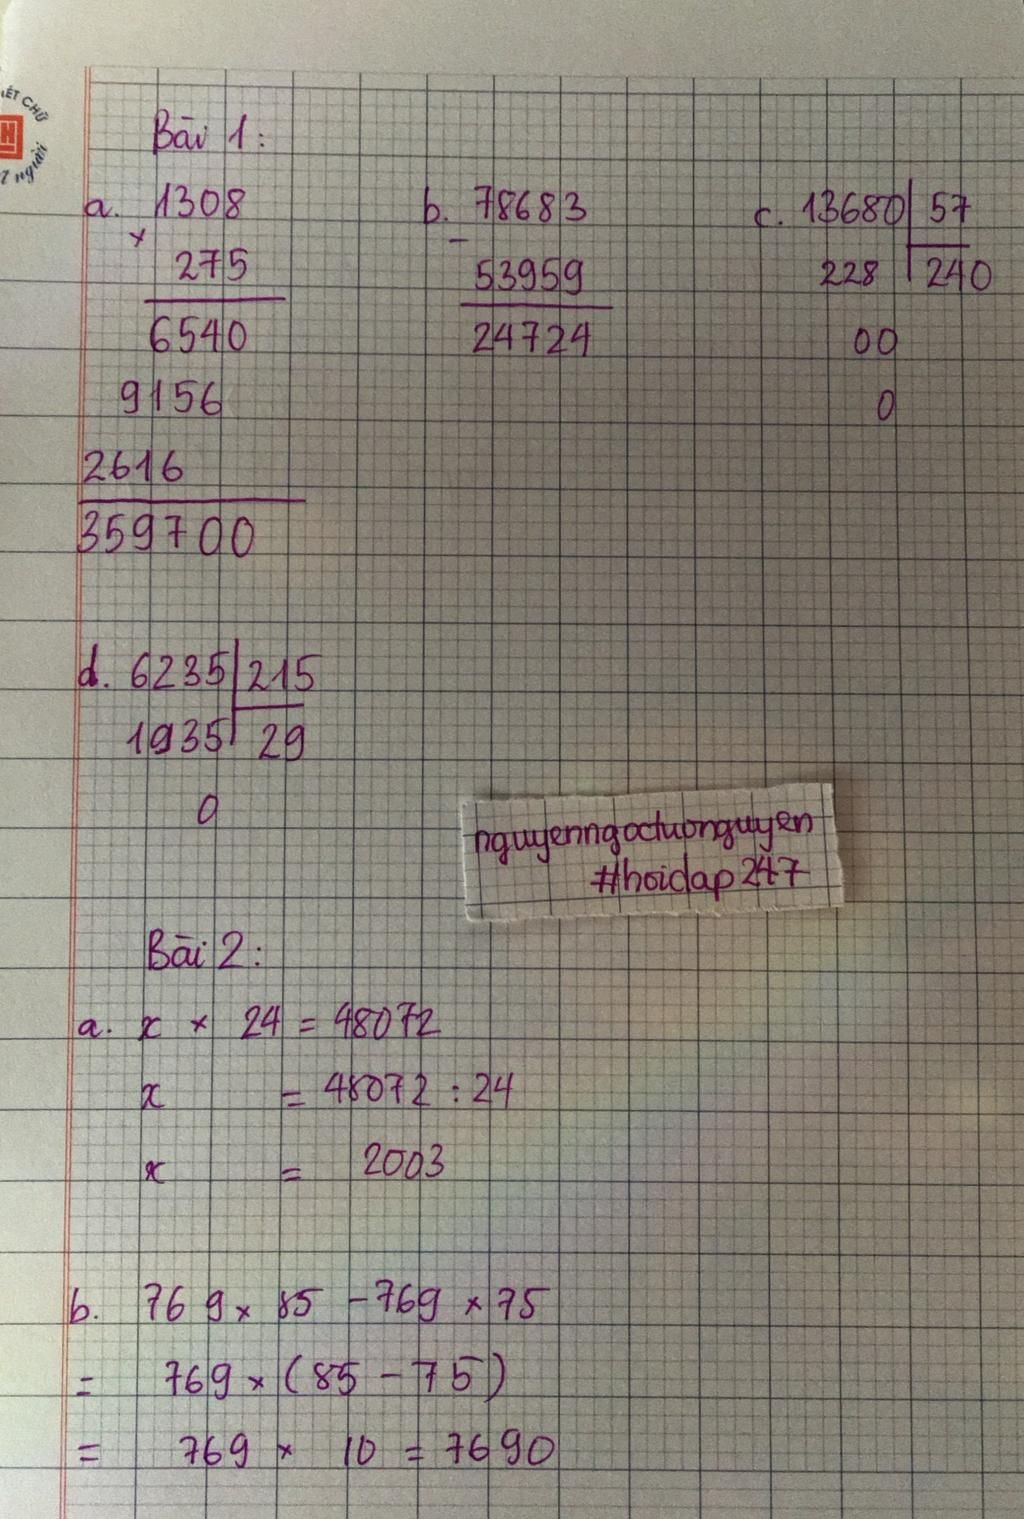 ẾT CHỮ
H
người
Bài 1:
a. 1308
×
275
6540
9156
2616
359700
b. 78683
-
53959
24724
c. 13680 57
228 240
00
0
d. 6235 215
1935 29
0
nguyenngoctuonguyen
#hoidap247
Bài 2:
a. x × 24 = 48072
x = 48072 : 24
x = 2003
b. 769 × 85 - 769 × 75
= 769 × (85 - 75)
= 769 × 10 = 7690